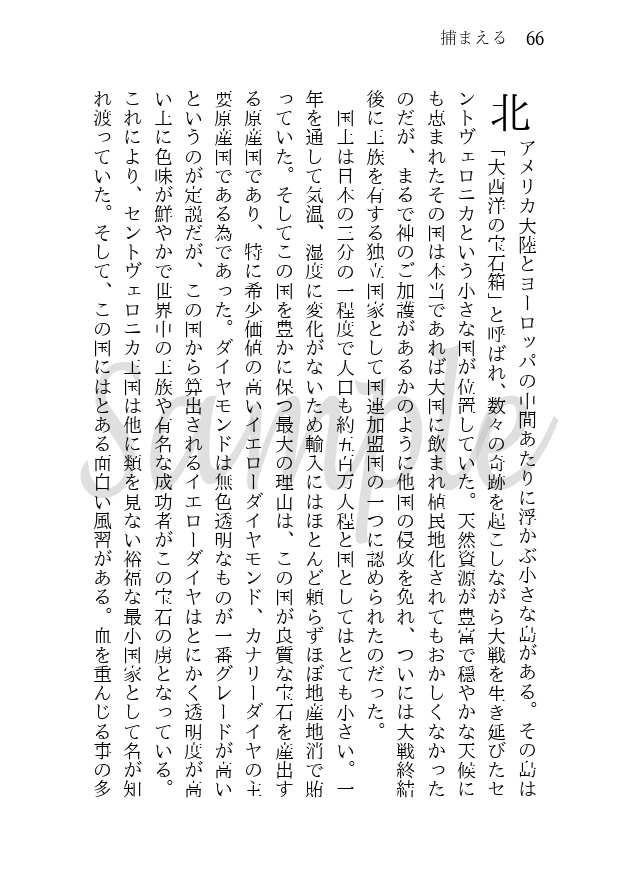 捕まえる 66
北アメリカ大陸とヨーロッパの中間あたりに浮かぶ小さな島がある。その島は
「大西洋の宝石箱」と呼ばれ、数々の奇跡を起こしながら大戦を生き延びたセ
ントヴェロニカという小さな国が位置していた。天然資源が豊富で穏やかな天候に
も恵まれたその国は本当であれば大国に飲まれ植民地化されてもおかしくなかった
のだが、まるで神のご加護があるかのように他国の侵攻を免れ、ついには大戦終結
後に王族を有する独立国家として国連加盟国の一つに認められたのだった。
国土は日本の三分の一程度で人口も約五百万人程と国としてはとても小さい。一
年を通して気温、湿度に変化がないため輸入にはほとんど頼らずほぼ地産地消で賄
っていた。そしてこの国を豊かに保つ最大の理由は、この国が良質な宝石を産出す
る原産国であり、特に希少価値の高いイエローダイヤモンド、カナリーダイヤの主
要原産国である為であった。ダイヤモンドは無色透明なものが一番グレードが高い
というのが定説だが、この国から算出されるイエローダイヤはとにかく透明度が高
い上に色味が鮮やかで世界中の王族や有名な成功者がこの宝石の虜となっている。
これにより、セントヴェロニカ王国は他に類を見ない裕福な最小国家として名が知
れ渡っていた。そして、この国にはとある面白い風習がある。血を重んじる事の多
Sample